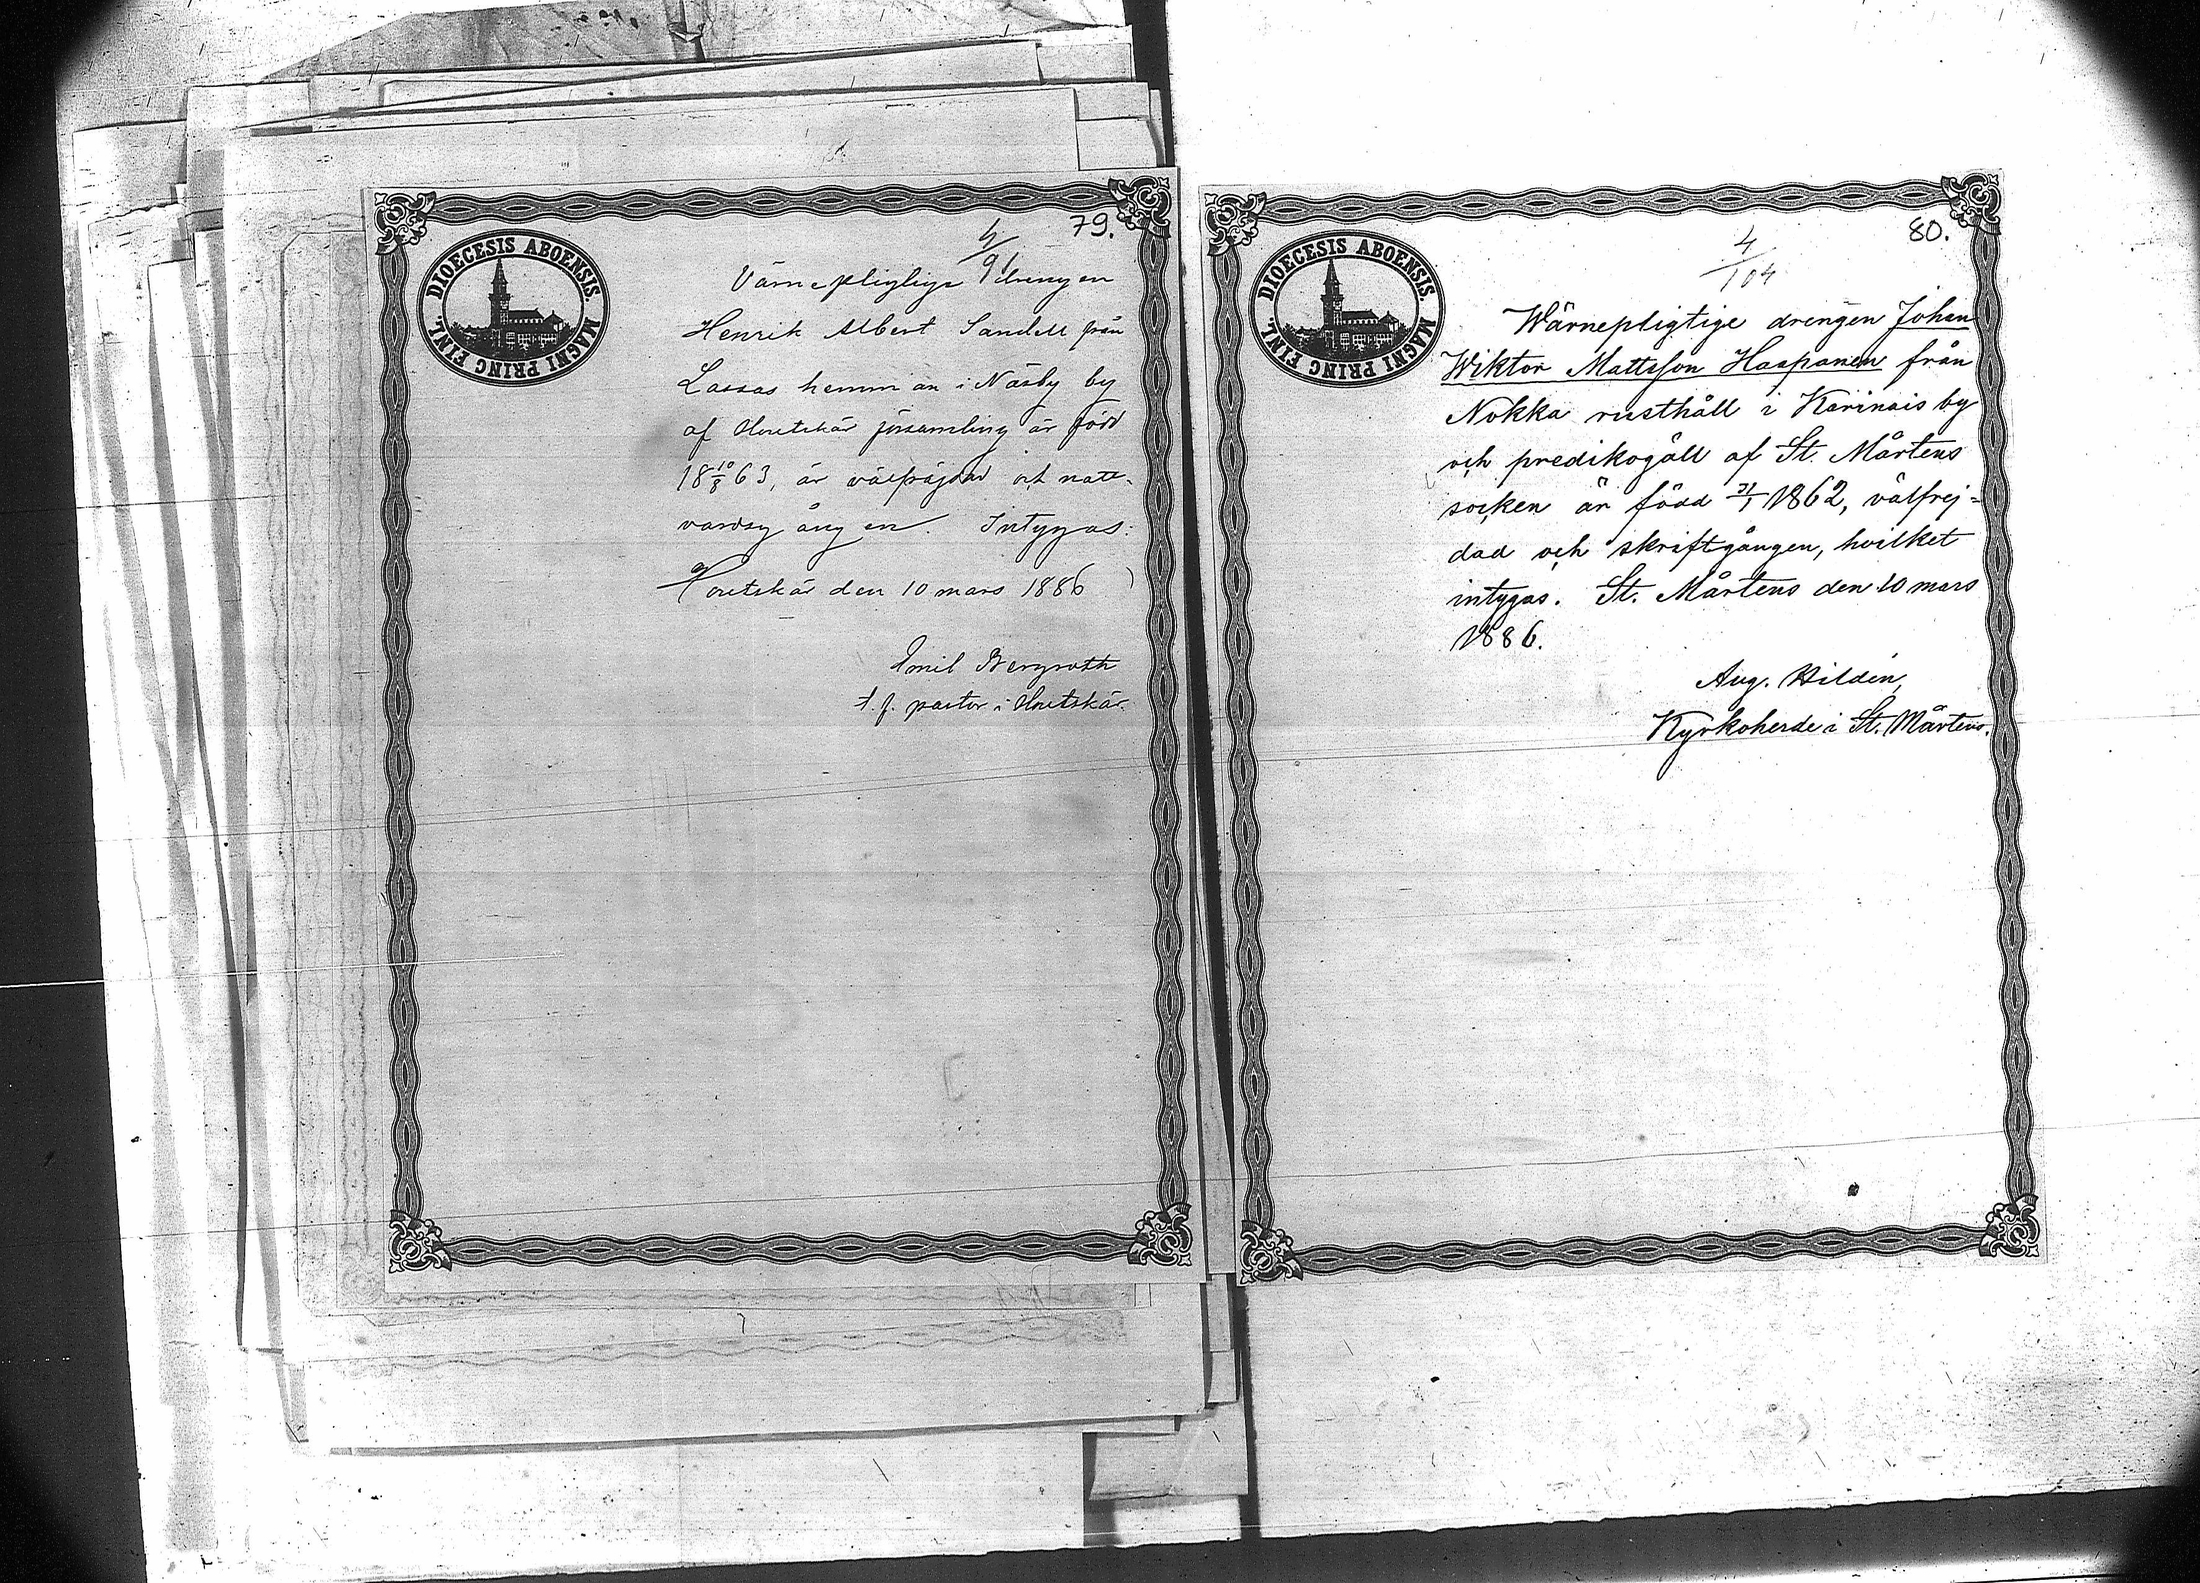 79.
4/91
DIOECESIS ABOENSIS. MAGNI PRINC FINL.
Värnepligtige drengen
Henrik Albert Sandell från
Lassas hemman i Näsby by
af Houtskär församling är född
18 10/8 63, är välfräjdad och natt-
vardsgången. Intygas:
Houtskär den 10 mars 1886
Emil Bergroth
t.f. pastor i Houtskär.
80.
4/104
DIOECESIS ABOENSIS. MAGNI PRINC FINL.
Wärnepligtige drengen Johan
Wiktor Mattsson Haapanen från
Nokka rusthåll i Karinais by
och predikogäll af St. Mårtens
socken är född 31/1 1862, välfrej=
dad och skriftgången, hvilket
intygas. St. Mårtens den 10 mars
1886.
Aug. Hildén,
Kyrkoherde i St. Mårtens.